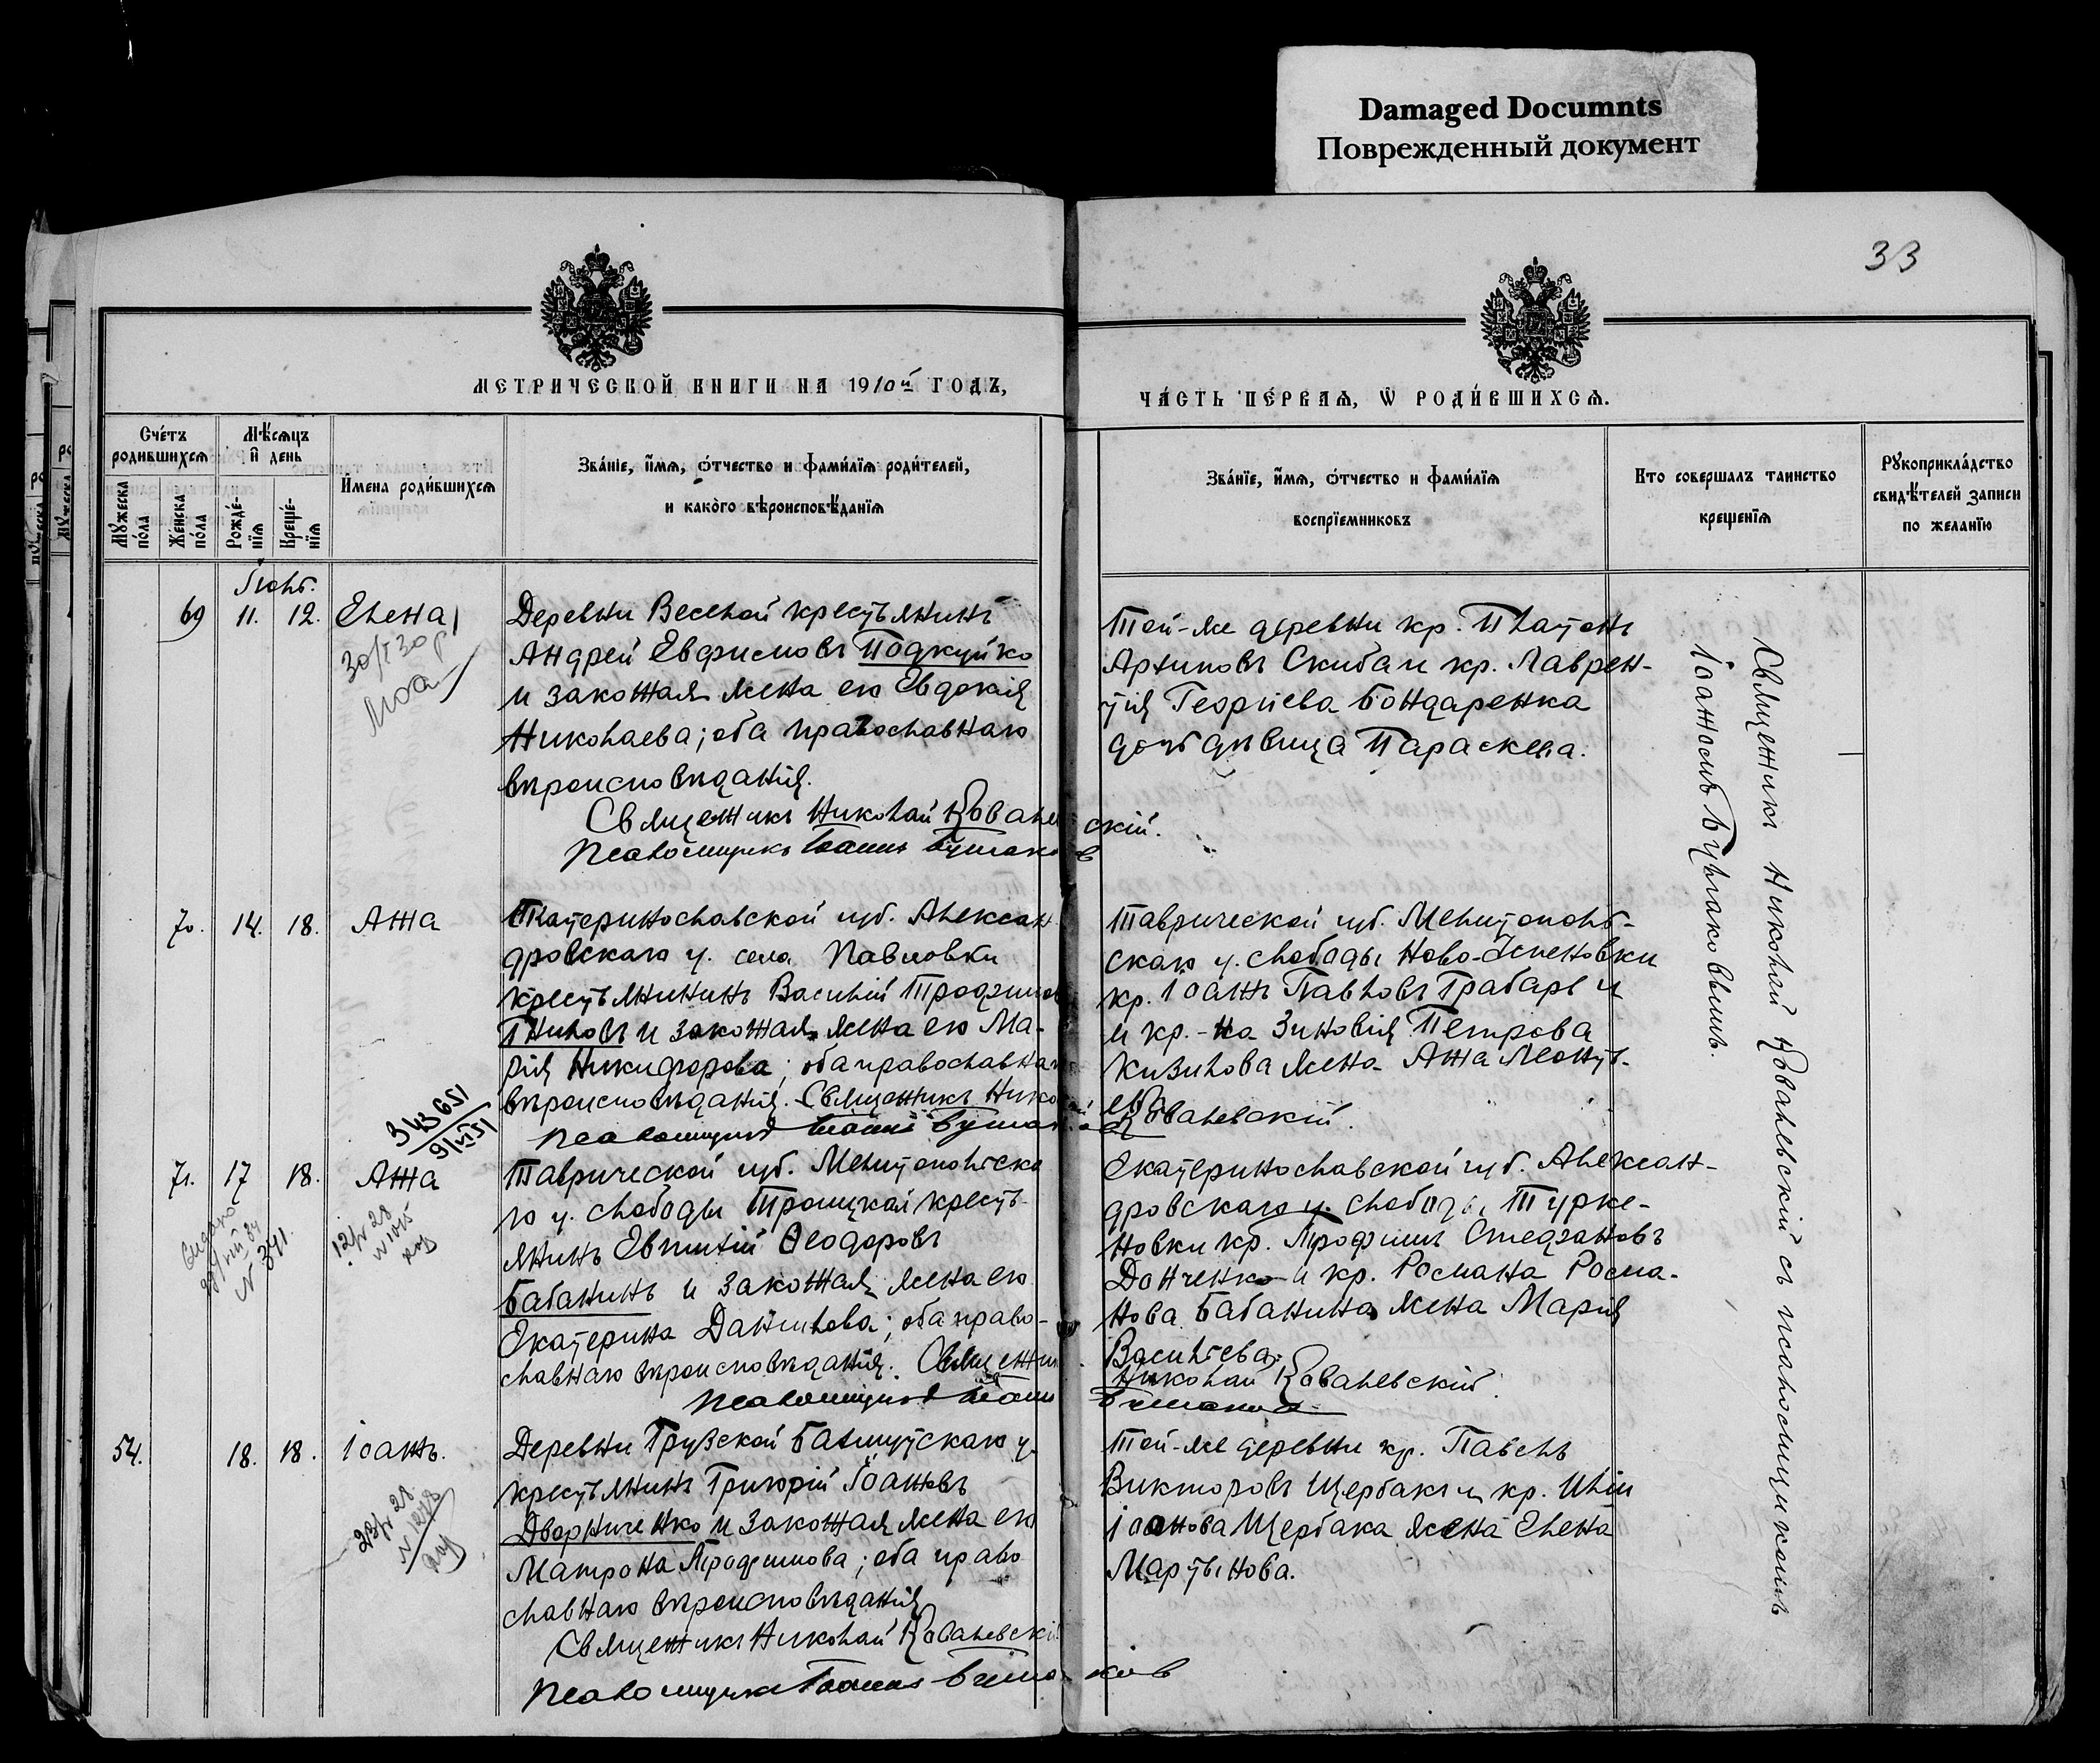 Damaged Documnts
Поврежденный документ
33
МЕТРИЧЕСКОЙ КНИГИ НА 1910й ГОДЪ,
ЧАСТЬ ПЕРВАЯ, Ѡ РОДИВШИХСЯ.
Счетъ родившихся
Мѣсяцъ и день
Имена родившихся
Званіе, имя, ѻтчество и фамилія родителей,
и какого вѣроисповѣданія
Мужеска пола
Женска пола
Рожденія
Крещенія
Званіе, имя, ѻтчество и фамилія
воспріемниковъ
Кто совершалъ таинство
крещенія
Рукоприкладство
свидѣтелей записи
по желанію
Іюнь.
69 11. 12. Елена
Деревни Веселой крестьянинъ
Андрей Евфимовъ Подкуйко
и законная жена его Евдокія
Николаева; оба православнаго
вѣроисповѣданія.
Священникъ Николай Ковалевскій.
Псаломщикъ Іоаннъ Бушаковъ
Той-же деревни кр. Платонъ
Архиповъ Скиба и кр. Лаврен-
тія Георгіева Бондаренка
дочь дѣвица Параскева.
Священникъ Николай Ковалевскій съ псаломщикомъ
Іоанномъ Бушаковымъ.
70. 14. 18. Анна
Екатеринославской губ. Алексан-
дровскаго у. села Павловки
крестьянинъ Василій Трофимов
Гниловъ и законная жена его Ма-
рія Никифорова; оба православнаго
вѣроисповѣданія. Священникъ Николай Ковалевскій.
Псаломщикъ Іоаннъ Бушаковъ
Таврической губ. Мелитополь-
скаго у. слободы Ново-Успеновки
кр. Іоаннъ Павловъ Грабарь и
и кр.-на Зиновія Петрова
Кизилова жена Анна Леонть-
ева.
343651
9/VI 51
71. 17 18. Анна
12/IV 28
Выдано
N 341.
Таврической губ. Мелитопольска
го у. слободы Троицкой кресть-
янинъ Евтихій Ѳеодоровъ
Бабанинъ и законная жена его
Екатерина Данилова; оба право-
славнаго вѣроисповѣданія. Священник
Николай Ковалевскій.
Псаломщикъ Іоаннъ Бушаковъ
Екатеринославской губ. Алексан-
дровскаго у. слободы Турке-
новки кр. Трофимъ Стефановъ
Донченко и кр. Романа Рома-
нова Бабанина жена Марія
Васильева.
54. 18. 18. Іоаннъ.
23/IV 28
Деревни Грузской Бахмутскаго у.
крестьянинъ Григорій Іоанновъ
Дворниченко и законная жена его
Матрона Трофимова; оба право
славнаго вѣроисповѣданія
Священникъ Николай Ковалевскій
Псаломщикъ Іоаннъ Бушаковъ
Той-же деревни кр. Павелъ
Викторовъ Щербакъ и кр. Иліи
Іоанова Щербака жена Елена
Мартынова.